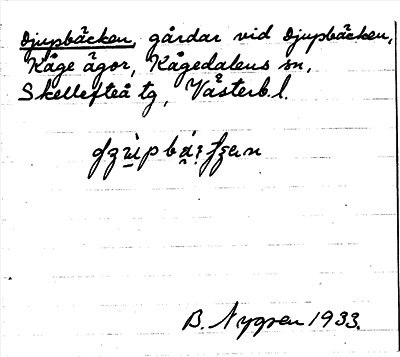 Djupbäcken, gårdar vid Djupbäcken,
Kåge ägor, Kågedalens sn,
Skellefteå tg, Västerb.l.
B. Nygren 1933.